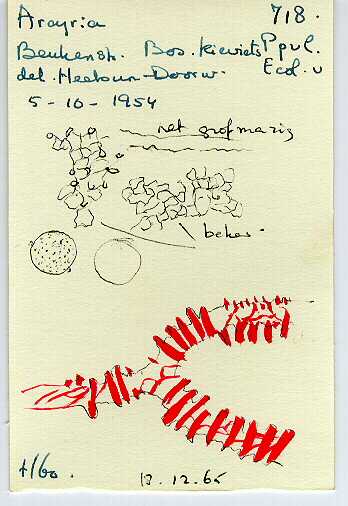 Arcyria 718.
Beukenst. Bos. Kieviets Ppul.
del. Heelsum-Doorw. Ecol. v
5-10-1954
net grofmazig
beker.
1/60.
13.12.65